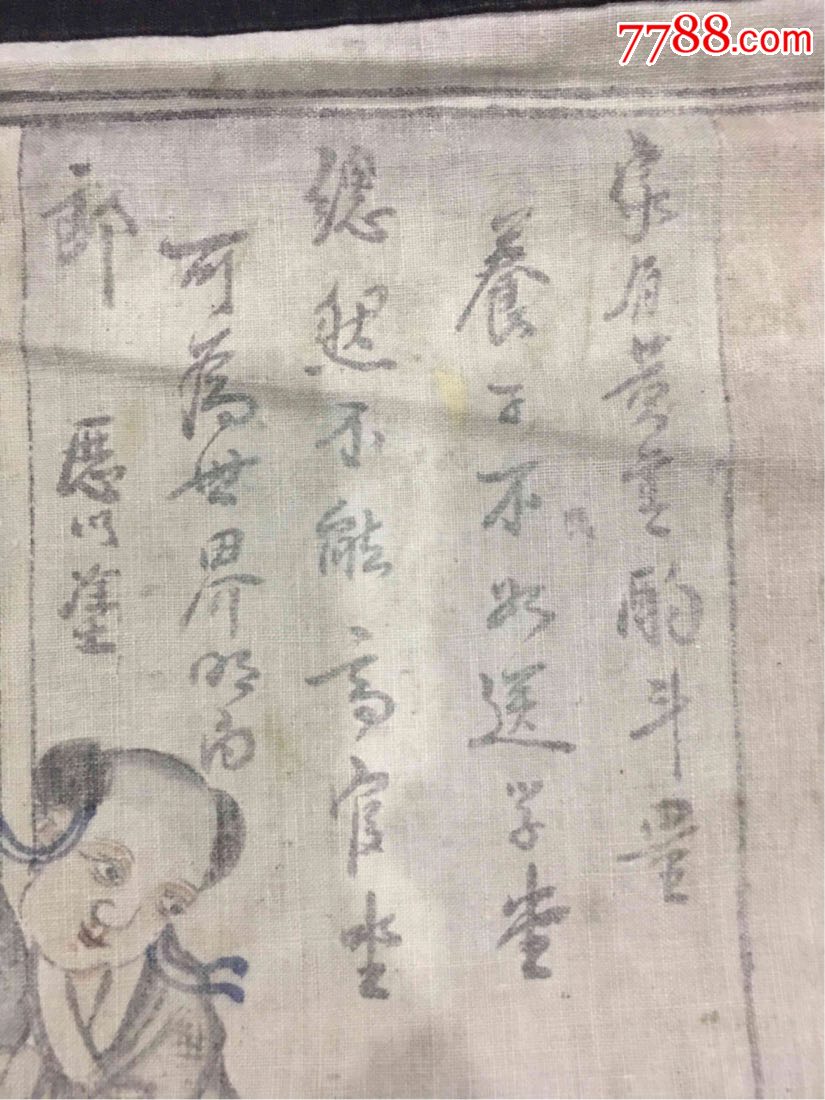 7788.com
家有黄金酌斗量
養子不如送学堂
總然不能高官坐
可為世界明白
郎